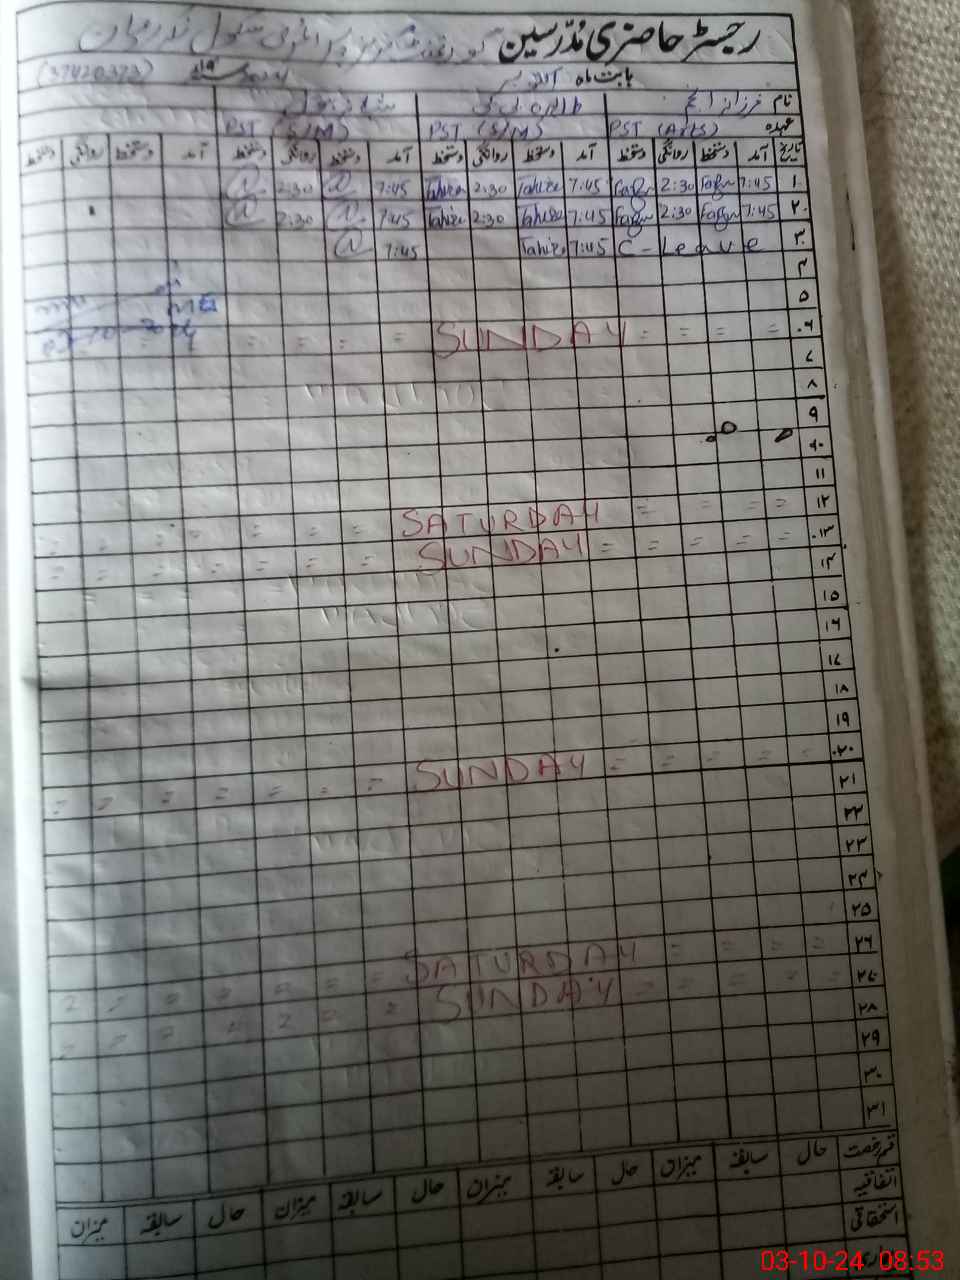 رجسٹر حاضری مُدرّسین گورنمنٹ گرلز پرائمری سکول
بابت ماہ اکتوبر 2024ء (37420373)
نام فرزانہ انجم طاہرہ بی بی
عہدہ PST (Arts) PST (S/M) PST (S/M)
تاریخ آمد دستخط روانگی دستخط آمد دستخط روانگی دستخط آمد دستخط روانگی دستخط آمد دستخط روانگی دستخط
۱ 7:45 2:30 7:45 Tahira 2:30 Tahira 7:45 2:30
۲ 7:45 2:30 7:45 Tahira 2:30 Tahira 7:45 2:30
۳ C - Leave 7:45 Tahira 7:45
۴
۵
۶ = = = = SUNDAY = = = =
۷
۸
۹
۱۰
۱۱
۱۲ = = = SATURDAY = = = = = = =
۱۳ = = = = SUNDAY = = = = = = =
۱۴
۱۵
۱۶
۱۷
۱۸
۱۹
۲۰ = = = = = SUNDAY = = = = = = =
۲۱
۲۲
۲۳
۲۴
۲۵
۲۶ = = = SATURDAY = = = = = = =
۲۷ = = = = SUNDAY = = = = = = =
۲۸
۲۹
۳۰
۳۱
قسم رخصت حال سابقہ میزان حال سابقہ میزان حال سابقہ میزان حال سابقہ میزان
اتفاقیہ
استحقاقی
03-10-24 08:53